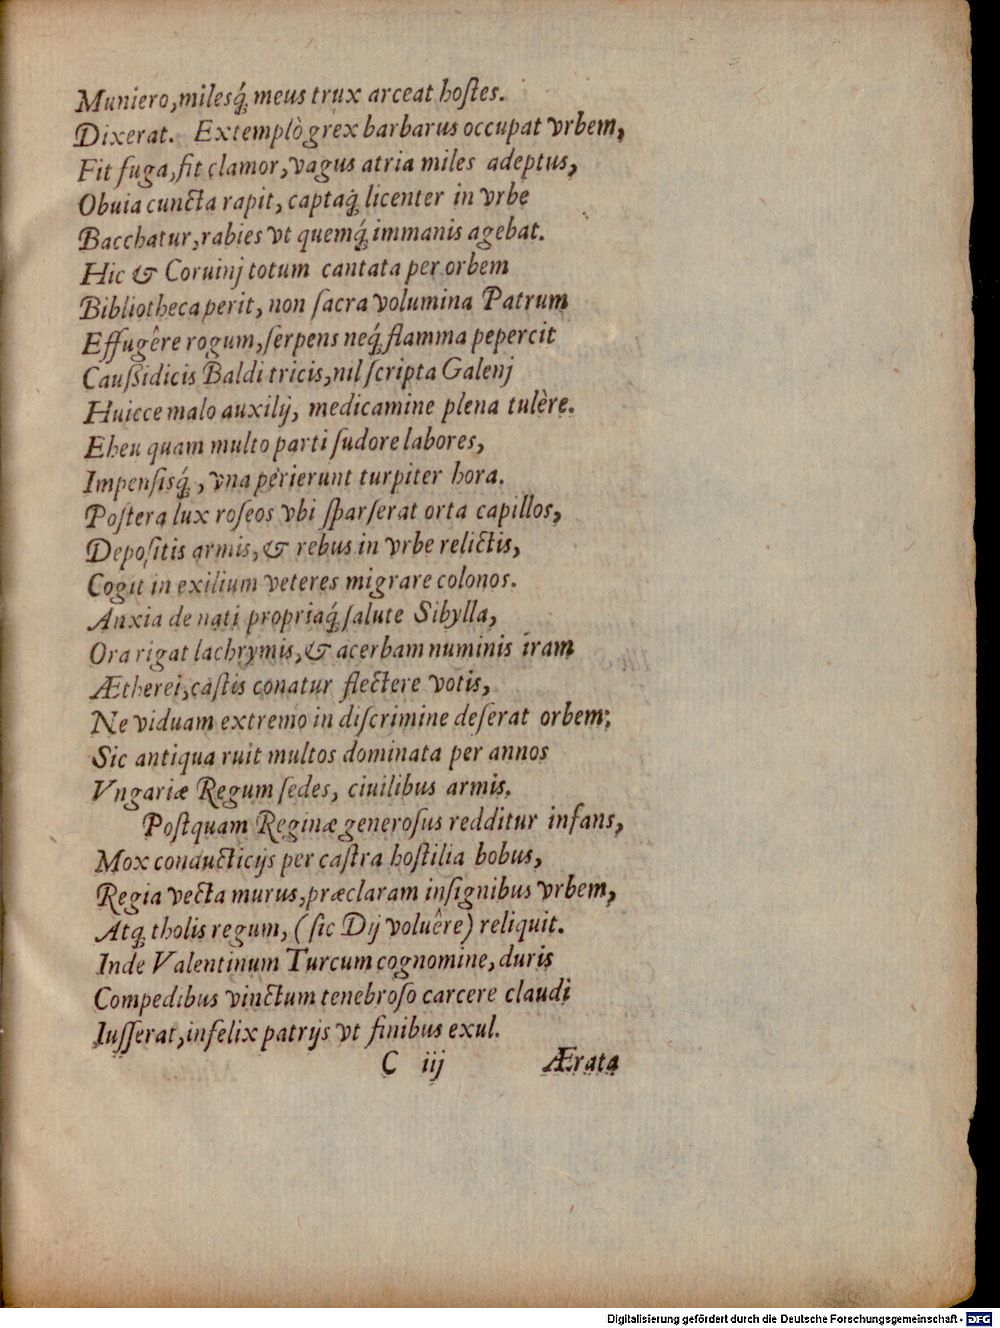 Muniero, milesq́; meus trux arceat hoſtes.
Dixerat. Extemplò grex barbarus occupat vrbem,
Fit fuga, fit clamor, vagus atria miles adeptus,
Obuia cuncta rapit, captaq́; licenter in vrbe
Bacchatur, rabies vt quemq́; immanis agebat.
Hic & Coruinj totum cantata per orbem
Bibliotheca perit, non ſacra volumina Patrum
Effugêre rogum, ſerpens neq́; flamma pepercit
Cauſsidicis Baldi tricis, nil ſcripta Galenj
Huicce malo auxilij, medicamine plena tulère.
Eheu quam multo parti ſudore labores,
Impenſisq́;, vna perierunt turpiter hora.
Poſtera lux roſeos vbi ſparſerat orta capillos,
Depoſitis armis, & rebus in vrbe relictis,
Cogit in exilium veteres migrare colonos.
Anxia de nati propriaq́; ſalute Sibylla,
Ora rigat lachrymis, & acerbam numinis iram
Ætherei, caſtis conatur flectere votis,
Ne viduam extremo in diſcrimine deſerat orbem;
Sic antiqua ruit multos dominata per annos
Vngariæ Regum ſedes, ciuilibus armis.
Poſtquam Reginæ generoſus redditur infans,
Mox conducticijs per caſtra hoſtilia bobus,
Regia vecta murus, præclaram inſignibus vrbem,
Atq; tholis regum, (ſic Dij voluêre) reliquit.
Inde Valentinum Turcum cognomine, duris
Compedibus vinctum tenebroſo carcere claudi
Iuſſerat, infelix patrijs vt finibus exul.
C iij Ærata
Digitalisierung gefördert durch die Deutsche Forschungsgemeinschaft - DFG